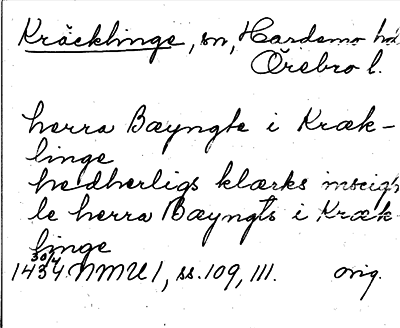 Kräcklinge, sn, Hardemo hd
Örebro l.
herra Bæyngte i Kræk-
linge
hedherligs klærks inseigh
le herra Bæyngts i Kræk-
linge
30/4
1434 NMU 1, ss. 109, 111. orig.